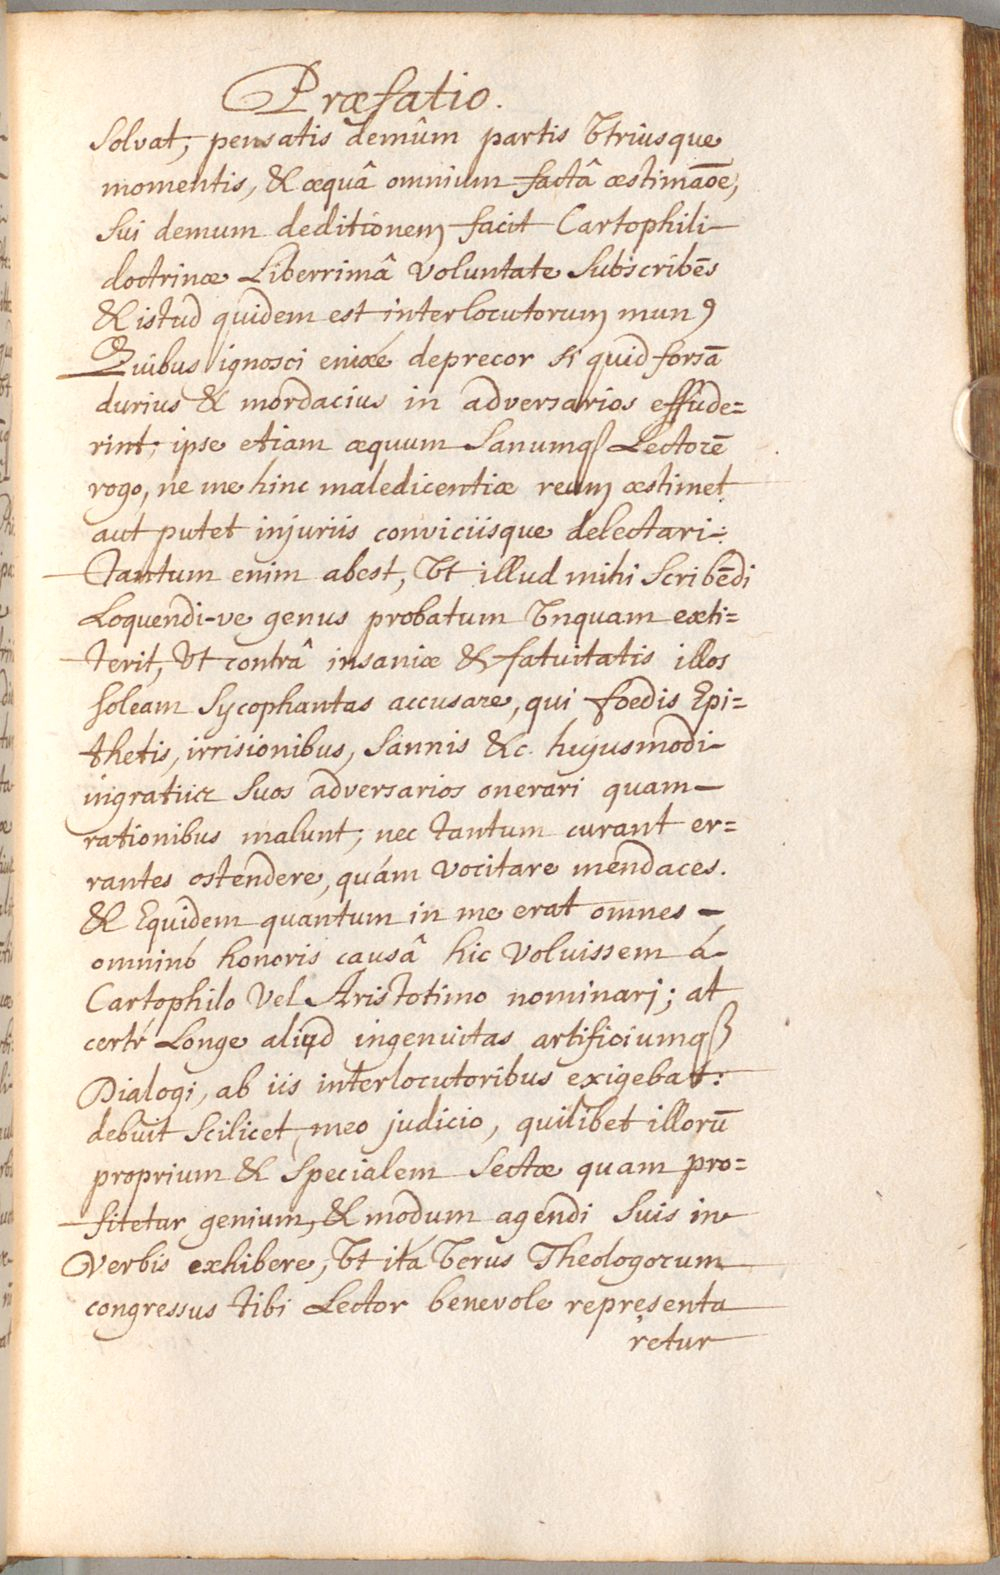 Præfatio.
Solvat, pensatis demûm partis Vtriusque
momentis, & æquâ omnium factâ æstimaõe,
Sui demum deditionem facit Cartophili
doctrinæ Liberrimâ Voluntate Subscribẽs
& istud quidem est interlocutorum munꝰ
Quibus ignosci enixé deprecor si quid forsã
durius & mordacius in adversarios effude=
rint; ipse etiam æquum Sanumqꝫ Lectorẽ
rogo, ne me hinc maledicentiæ reum æstimet
aut putet injuriis conviciisque delectari.
Tantum enim abest, Vt illud mihi Scribẽdi
Loquendi-ve genus probatum Vnquam exti=
terit, Vt contrâ insaniæ & fatuitatis illos
soleam Sycophantas accusare, qui foedis Epi=
thetis, irrisionibus, Sannis &c. hujusmodi
Suos adversarios onerari quam
rationibus malunt; nec tantum curant er=
rantes ostendere, quám Vocitare mendaces.
& Equidem quantum in me erat omnes
omninò honoris causâ hic Voluissem á
Cartophilo Vel Aristotimo nominari; at
certé Longe aliud ingenuitas artificiumqꝫ
Dialogi, ab iis interlocutoribus exigebat:
debuit Scilicet, meo judicio, quilibet illorũ
proprium & Specialem Sectæ quam pro=
fitetur genium, & modum agendi Suis in
Verbis exhibere, Vt ita Verus Theologorum
congressus tibi Lector benevole representa
retur